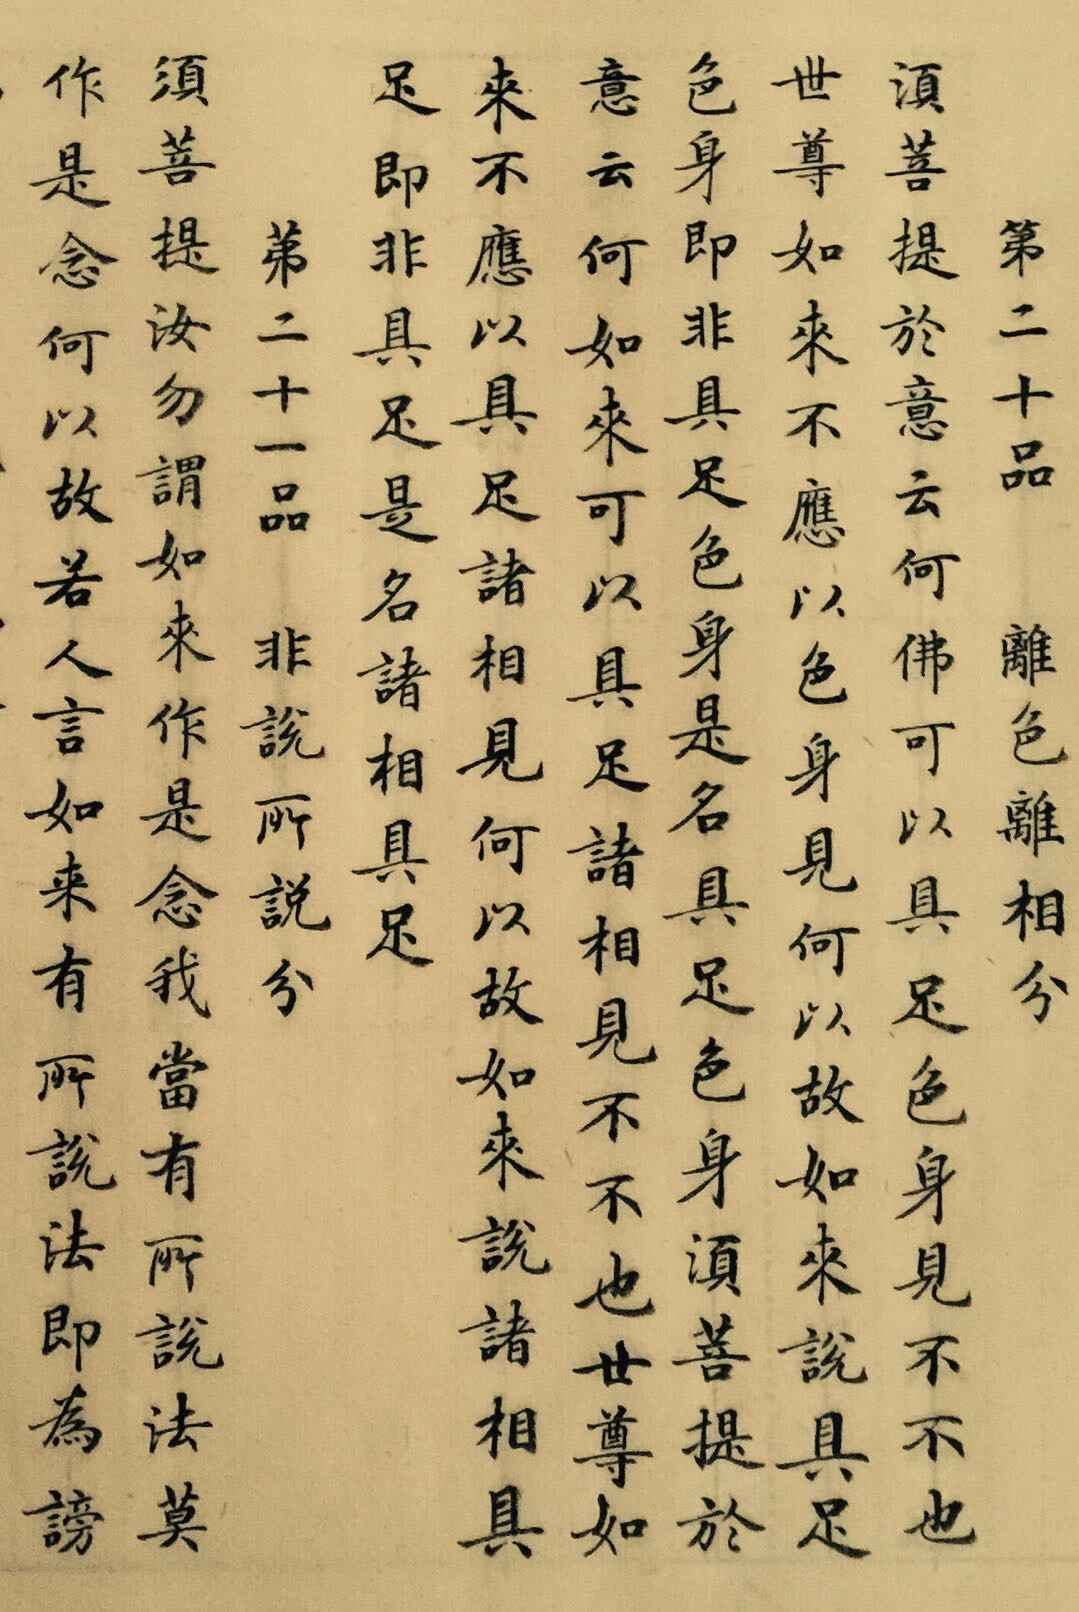 第二十品 離色離相分
須菩提於意云何佛可以具足色身見不不也
世尊如來不應以色身見何以故如來說具足
色身即非具足色身是名具足色身須菩提於
意云何如來可以具足諸相見不不也世尊如
來不應以具足諸相見何以故如來說諸相具
足即非具足是名諸相具足
第二十一品 非說所說分
須菩提汝勿謂如來作是念我當有所說法莫
作是念何以故若人言如来有所說法即為謗